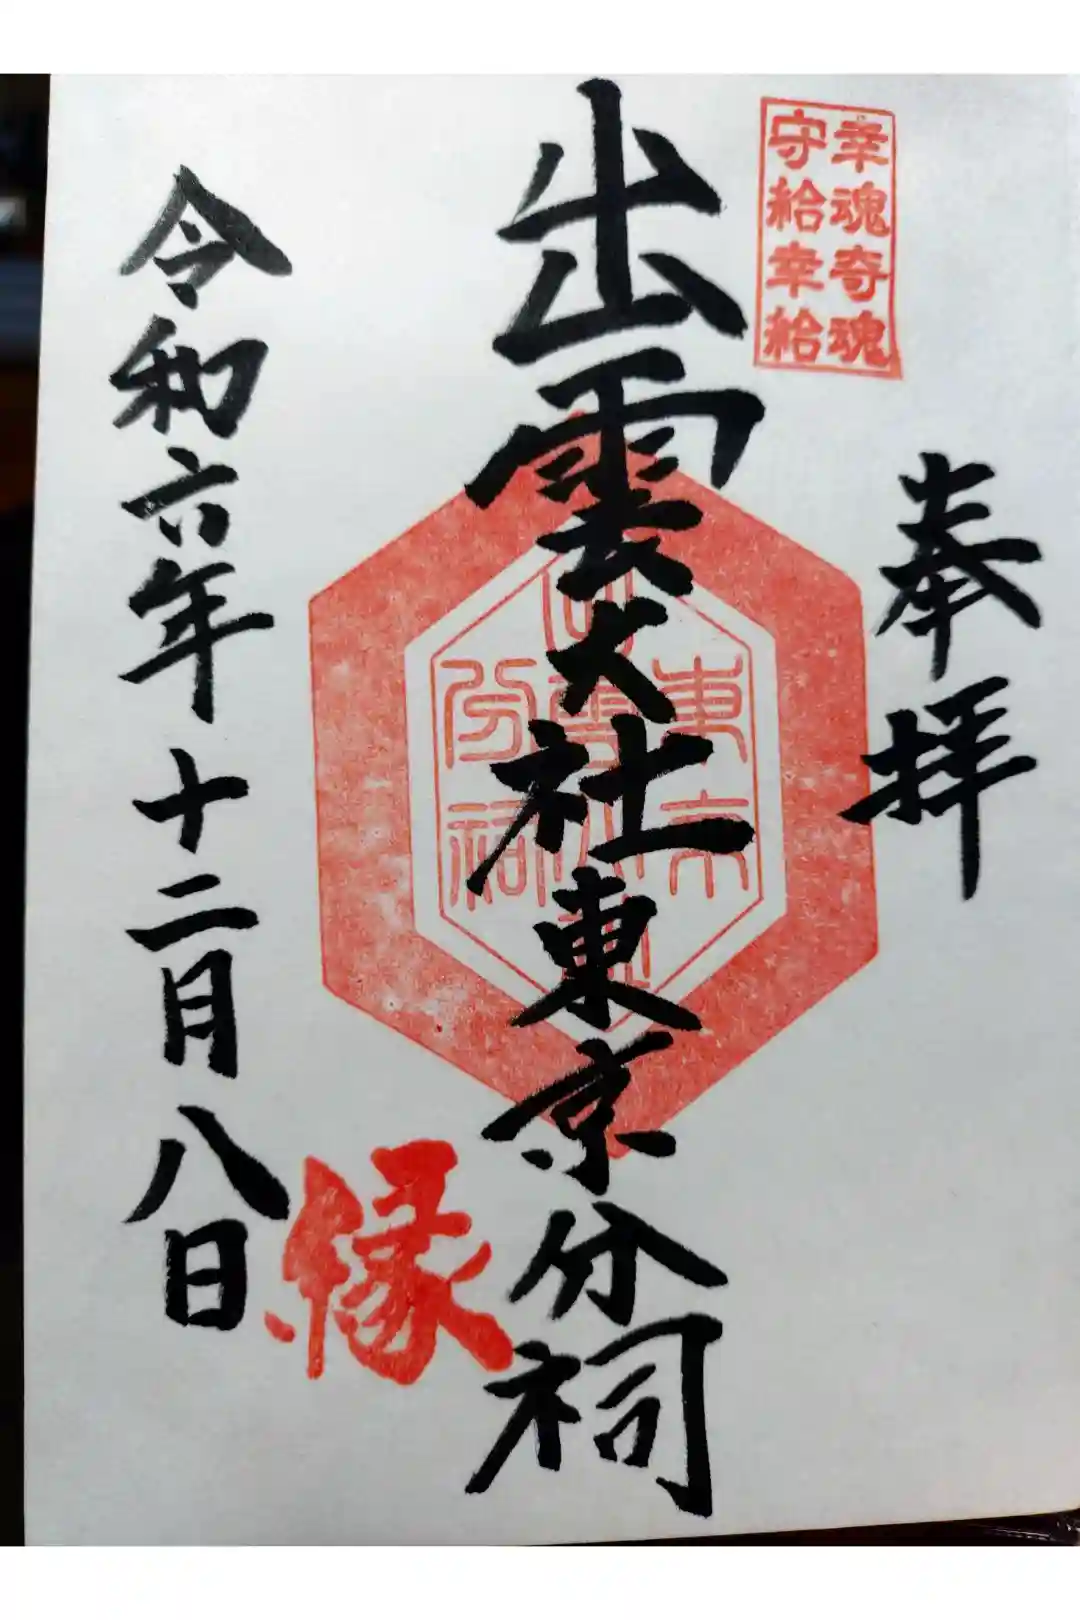 幸魂奇魂
守給幸給
奉拝
出雲大社東京分祠
東京
分祠
縁
令和六年十二月八日